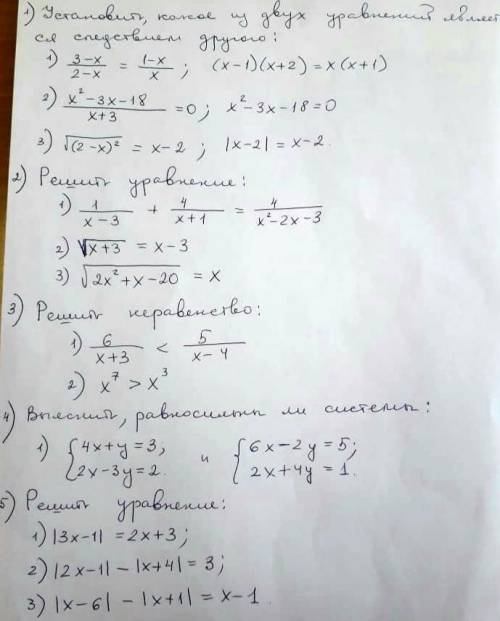 1) Установить, какое из двух уравнений являет
ся следствием другого:
1) (3-x)/(2-x) = (1-x)/x ; (x-1)(x+2) = x(x+1)
2) (x²-3x-18)/(x+3) = 0 ; x²-3x-18=0
3) √((2-x)²) = x-2 ; |x-2| = x-2.
2) Решить уравнение:
1) 1/(x-3) + 4/(x+1) = 4/(x²-2x-3)
2) √(x+3) = x-3
3) √(2x²+x-20) = x
3) Решить неравенство:
1) 6/(x+3) < 5/(x-4)
2) x⁷ > x³
4) Выяснить, равносильны ли системы:
1) {4x+y=3; и {6x-2y=5;
2x-3y=2. 2x+4y=1.
5) Решить уравнение:
1) |3x-1| = 2x+3;
2) |2x-1| - |x+4| = 3;
3) |x-6| - |x+1| = x-1